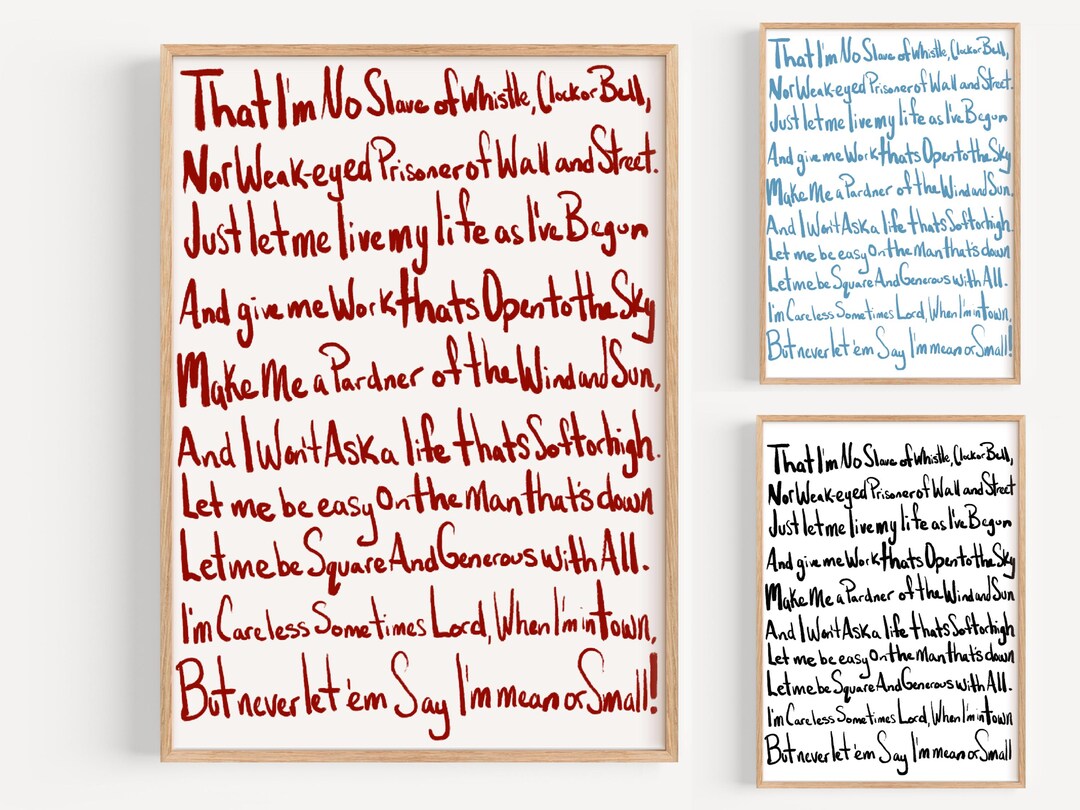 That I'm No Slave of Whistle, Clock or Bell,
Nor Weak-eyed Prisoner of Wall and Street.
Just let me live my life as I've Begun
And give me Work thats Open to the Sky
Make Me a Pardner of the Wind and Sun,
And I Won't Ask a life thats Soft or high.
Let me be easy On the Man that's down
Let me be Square And Generous with All.
I'm Careless Sometimes Lord, When I'm in Town,
But never let 'em Say I'm mean or Small!
That I'm No Slave of Whistle, Clock or Bell,
Nor Weak-eyed Prisoner of Wall and Street.
Just let me live my life as I've Begun
And give me Work thats Open to the Sky
Make Me a Pardner of the Wind and Sun.
And I Won't Ask a life thats Soft or high.
Let me be easy On the Man that's down
Let me be Square And Generous with All.
I'm Careless Sometimes Lord, When I'm in Town,
But never let 'em Say I'm mean or Small!
That I'm No Slave of Whistle, Clock or Bell,
Nor Weak-eyed Prisoner of Wall and Street
Just let me live my life as I've Begun
And give me Work thats Open to the Sky
Make Me a Pardner of the Wind and Sun
And I Won't Ask a life thats Soft or high
Let me be easy On the Man that's down
Let me be Square And Generous with All.
I'm Careless Sometimes Lord, When I'm in Town
But never let 'em Say I'm mean or Small